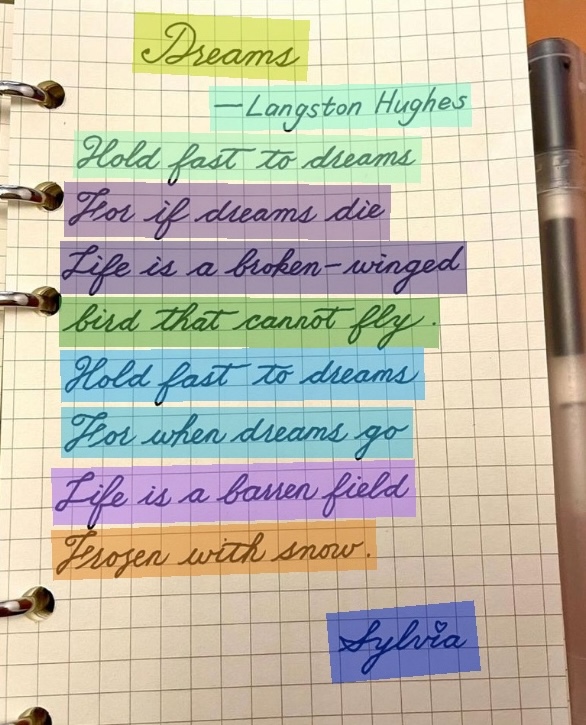 Dreams
—Langston Hughes
Hold fast to dreams
For if dreams die
Life is a broken-winged
bird that cannot fly.
Hold fast to dreams
For when dreams go
Life is a barren field
Frozen with snow.
Sylvia